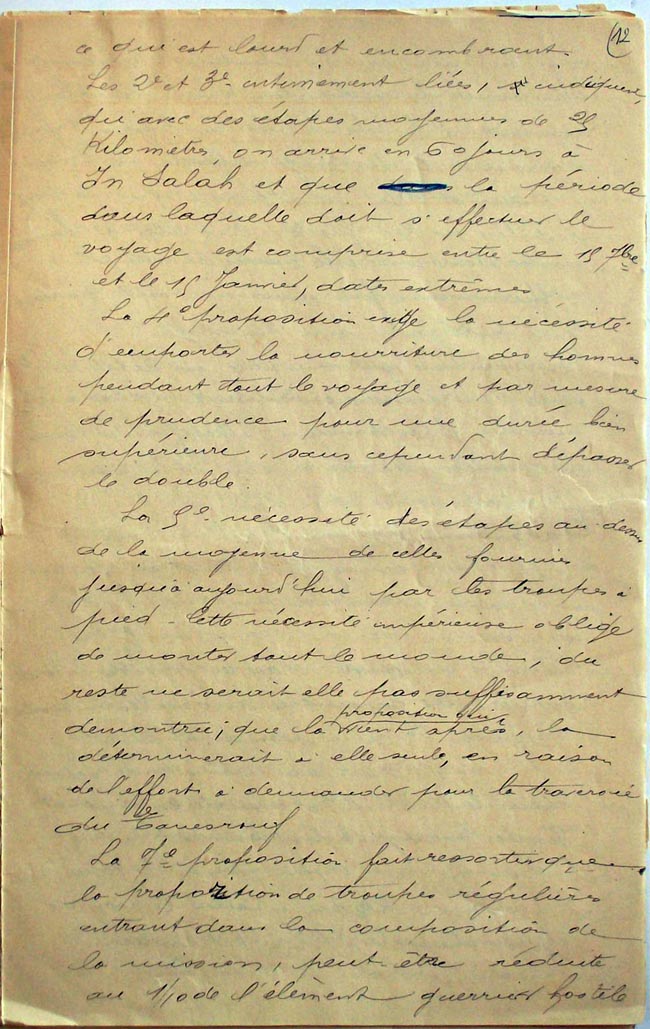 12
ce qui est lourd et encombrant.
Les 2e et 3e intimement liées, indiquent,
qu'avec des étapes moyennes de 25
Kilomètres, on arrive en 60 jours à
In Salah et que la période
dans laquelle doit s'effectuer le
voyage est comprise entre le 15 7bre
et le 15 Janvier, dates extrêmes
La 4e proposition exige la nécessité
d'emporter la nourriture des hommes
pendant tout le voyage et par mesure
de prudence pour une durée bien
supérieure, sans cependant dépasser
le double.
La 5e nécessité des étapes au dessus
de la moyenne de celles fournies
jusqu'à aujourd'hui par les troupes à
pied - Cette nécessité impérieuse oblige
de monter tout le monde; du
reste ne serait elle pas suffisamment
démontrée; que la proposition qui
vient après, la
déterminerait à elle seule, en raison
de l'effort à demander pour la traversée
du Tanesrouf
La 7e proposition fait ressortir que
la proportion de troupes régulières
entrant dans la composition de
la mission, peut être réduite
au 1/10 de l'élément guerrier hostile